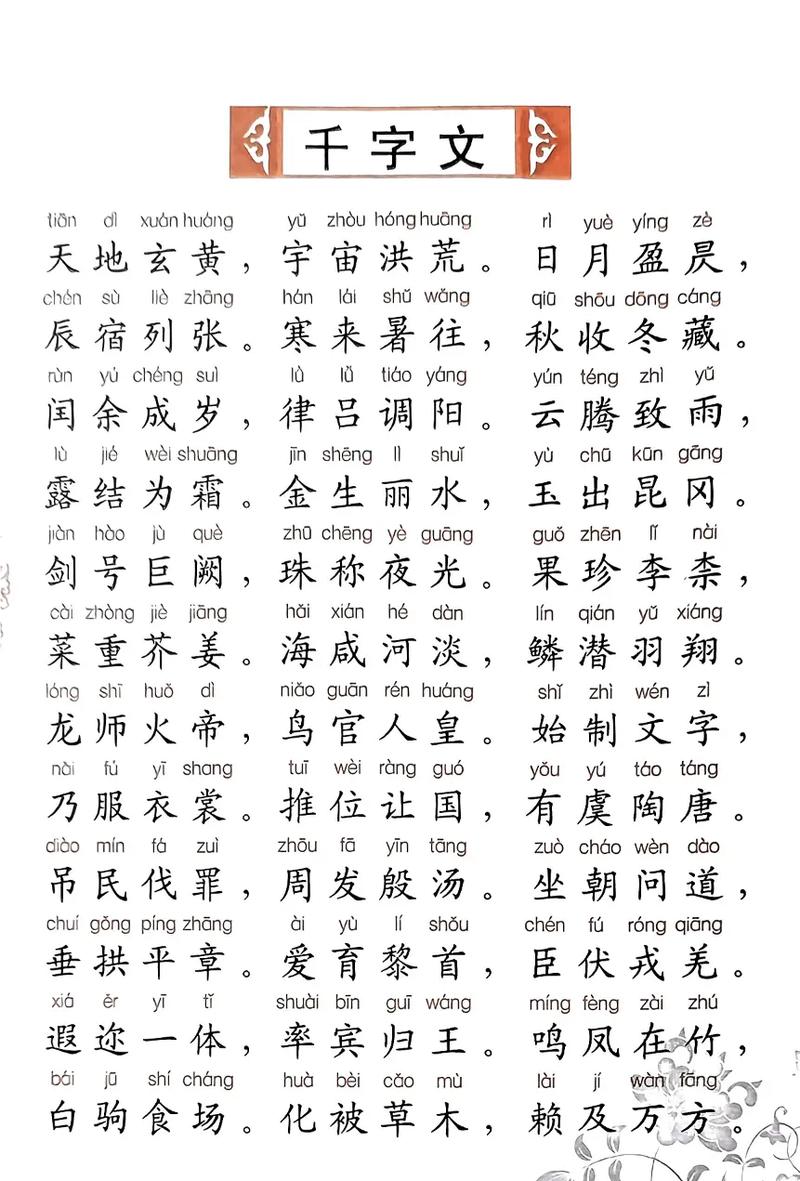 千字文
tiān dì xuán huáng yǔ zhòu hóng huāng rì yuè yíng zè
天地玄黄，宇宙洪荒。日月盈昃，
chén sù liè zhāng hán lái shǔ wǎng qiū shōu dōng cáng
辰宿列张。寒来暑往，秋收冬藏。
rùn yú chéng suì lǜ lǚ tiáo yáng yún téng zhì yǔ
闰余成岁，律吕调阳。云腾致雨，
lù jié wèi shuāng jīn shēng lì shuǐ yù chū kūn gāng
露结为霜。金生丽水，玉出昆冈。
jiàn hào jù què zhū chēng yè guāng guǒ zhēn lǐ nài
剑号巨阙，珠称夜光。果珍李柰，
cài zhòng jiè jiāng hǎi xián hé dàn lín qián yǔ xiáng
菜重芥姜。海咸河淡，鳞潜羽翔。
lóng shī huǒ dì niǎo guān rén huáng shǐ zhì wén zì
龙师火帝，鸟官人皇。始制文字，
nǎi fú yī shang tuī wèi ràng guó yǒu yú táo táng
乃服衣裳。推位让国，有虞陶唐。
diào mín fá zuì zhōu fā yīn tāng zuò cháo wèn dào
吊民伐罪，周发殷汤。坐朝问道，
chuí gǒng píng zhāng ài yù lí shǒu chén fú róng qiāng
垂拱平章。爱育黎首，臣伏戎羌。
xiá ěr yī tǐ shuài bīn guī wáng míng fèng zài zhú
遐迩一体，率宾归王。鸣凤在竹，
bái jū shí cháng huà bèi cǎo mù lài jí wàn fāng
白驹食场。化被草木，赖及万方。